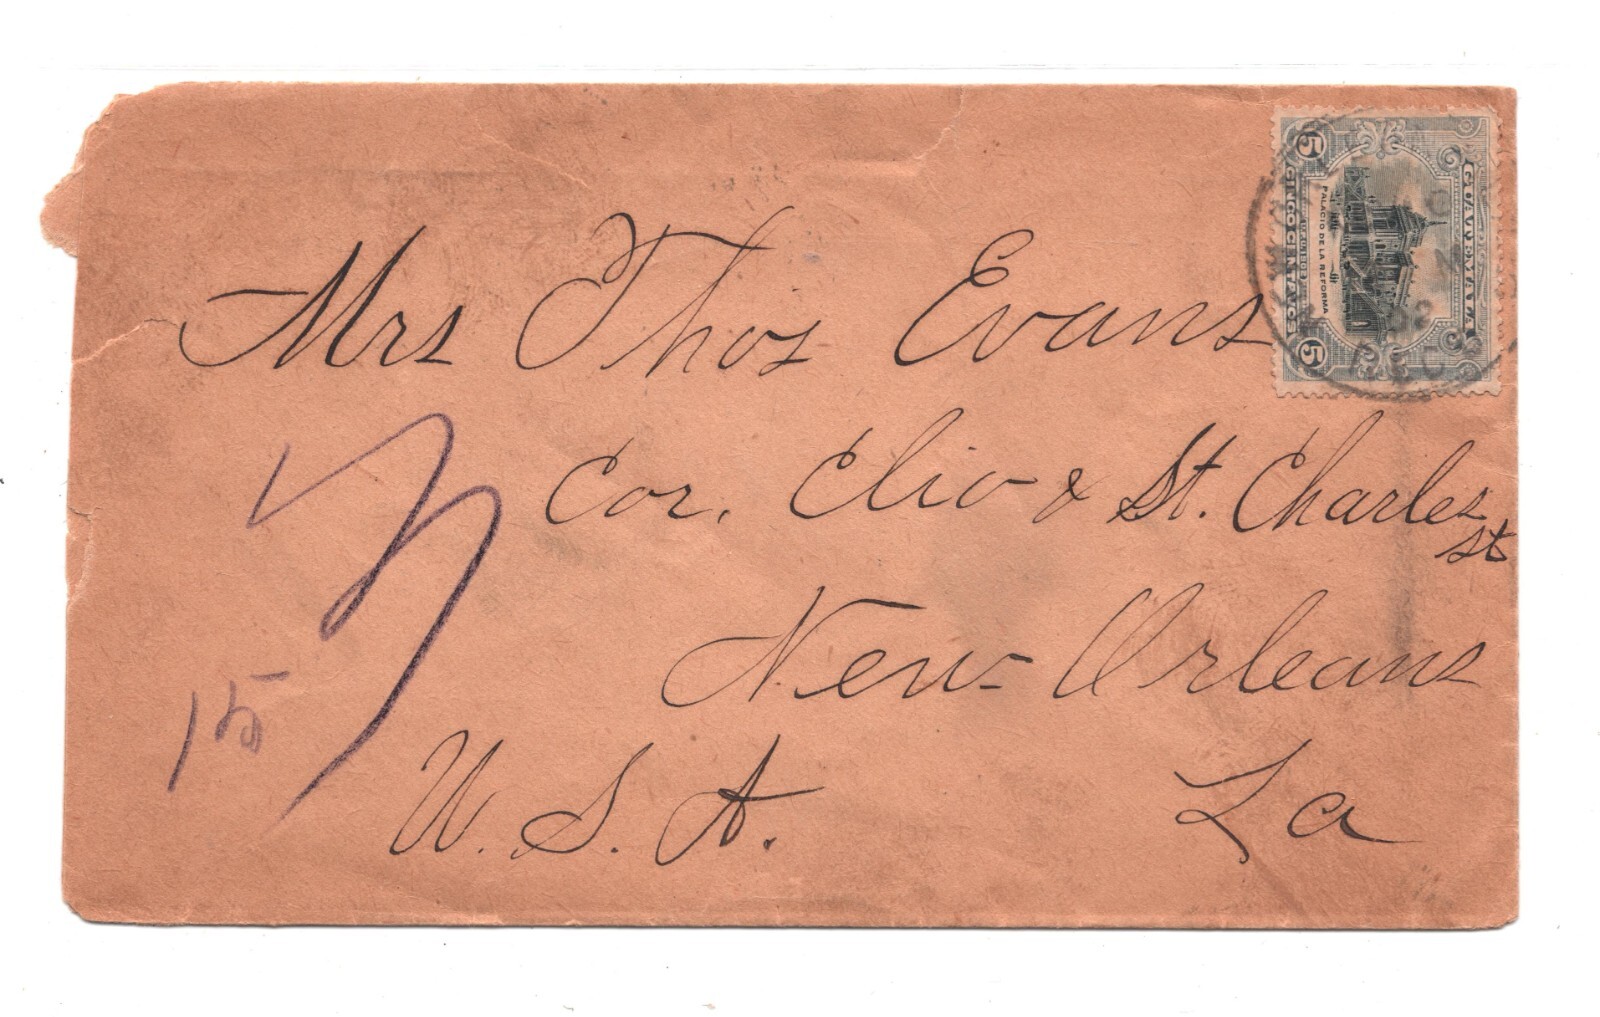 Mrs Thos Evans
Cor. Clio & St. Charles
st
New-Orleans
La
U.S.A.
15
GUATEMALA
PALACIO DE LA REFORMA
CINCO CENTAVOS
5
5